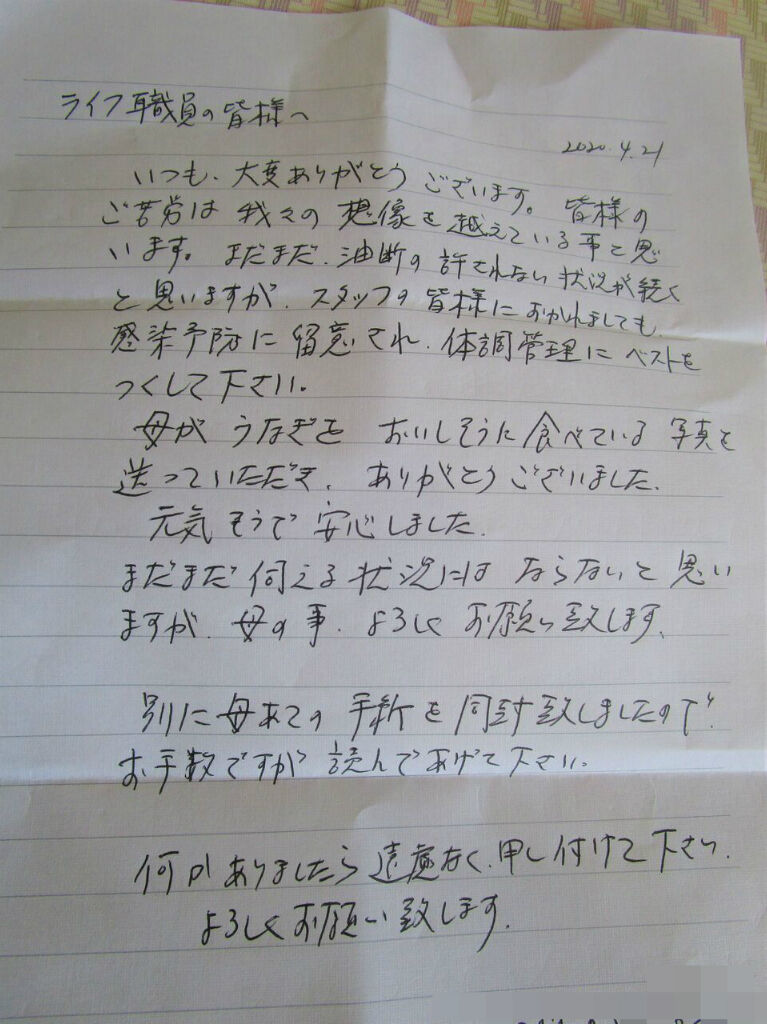 ライフ職員の皆様へ
2020.4.21
いつも、大変ありがとうございます。皆様の
ご苦労は我々の想像を越えている事と思
います。まだまだ、油断の許されない状況が続く
と思いますが、スタッフの皆様におかれましても、
感染予防に留意され、体調管理にベストを
つくして下さい。
母がうなぎをおいしそうに食べている写真を
送っていただき、ありがとうございました。
元気そうで安心しました。
まだまだ伺える状況にはならないと思い
ますが、母の事、よろしくお願い致します。
別に母あての手紙を同封致しましたので
お手数ですが読んであげて下さい。
何かありましたら遠慮なく、申し付けて下さい。
よろしくお願い致します。